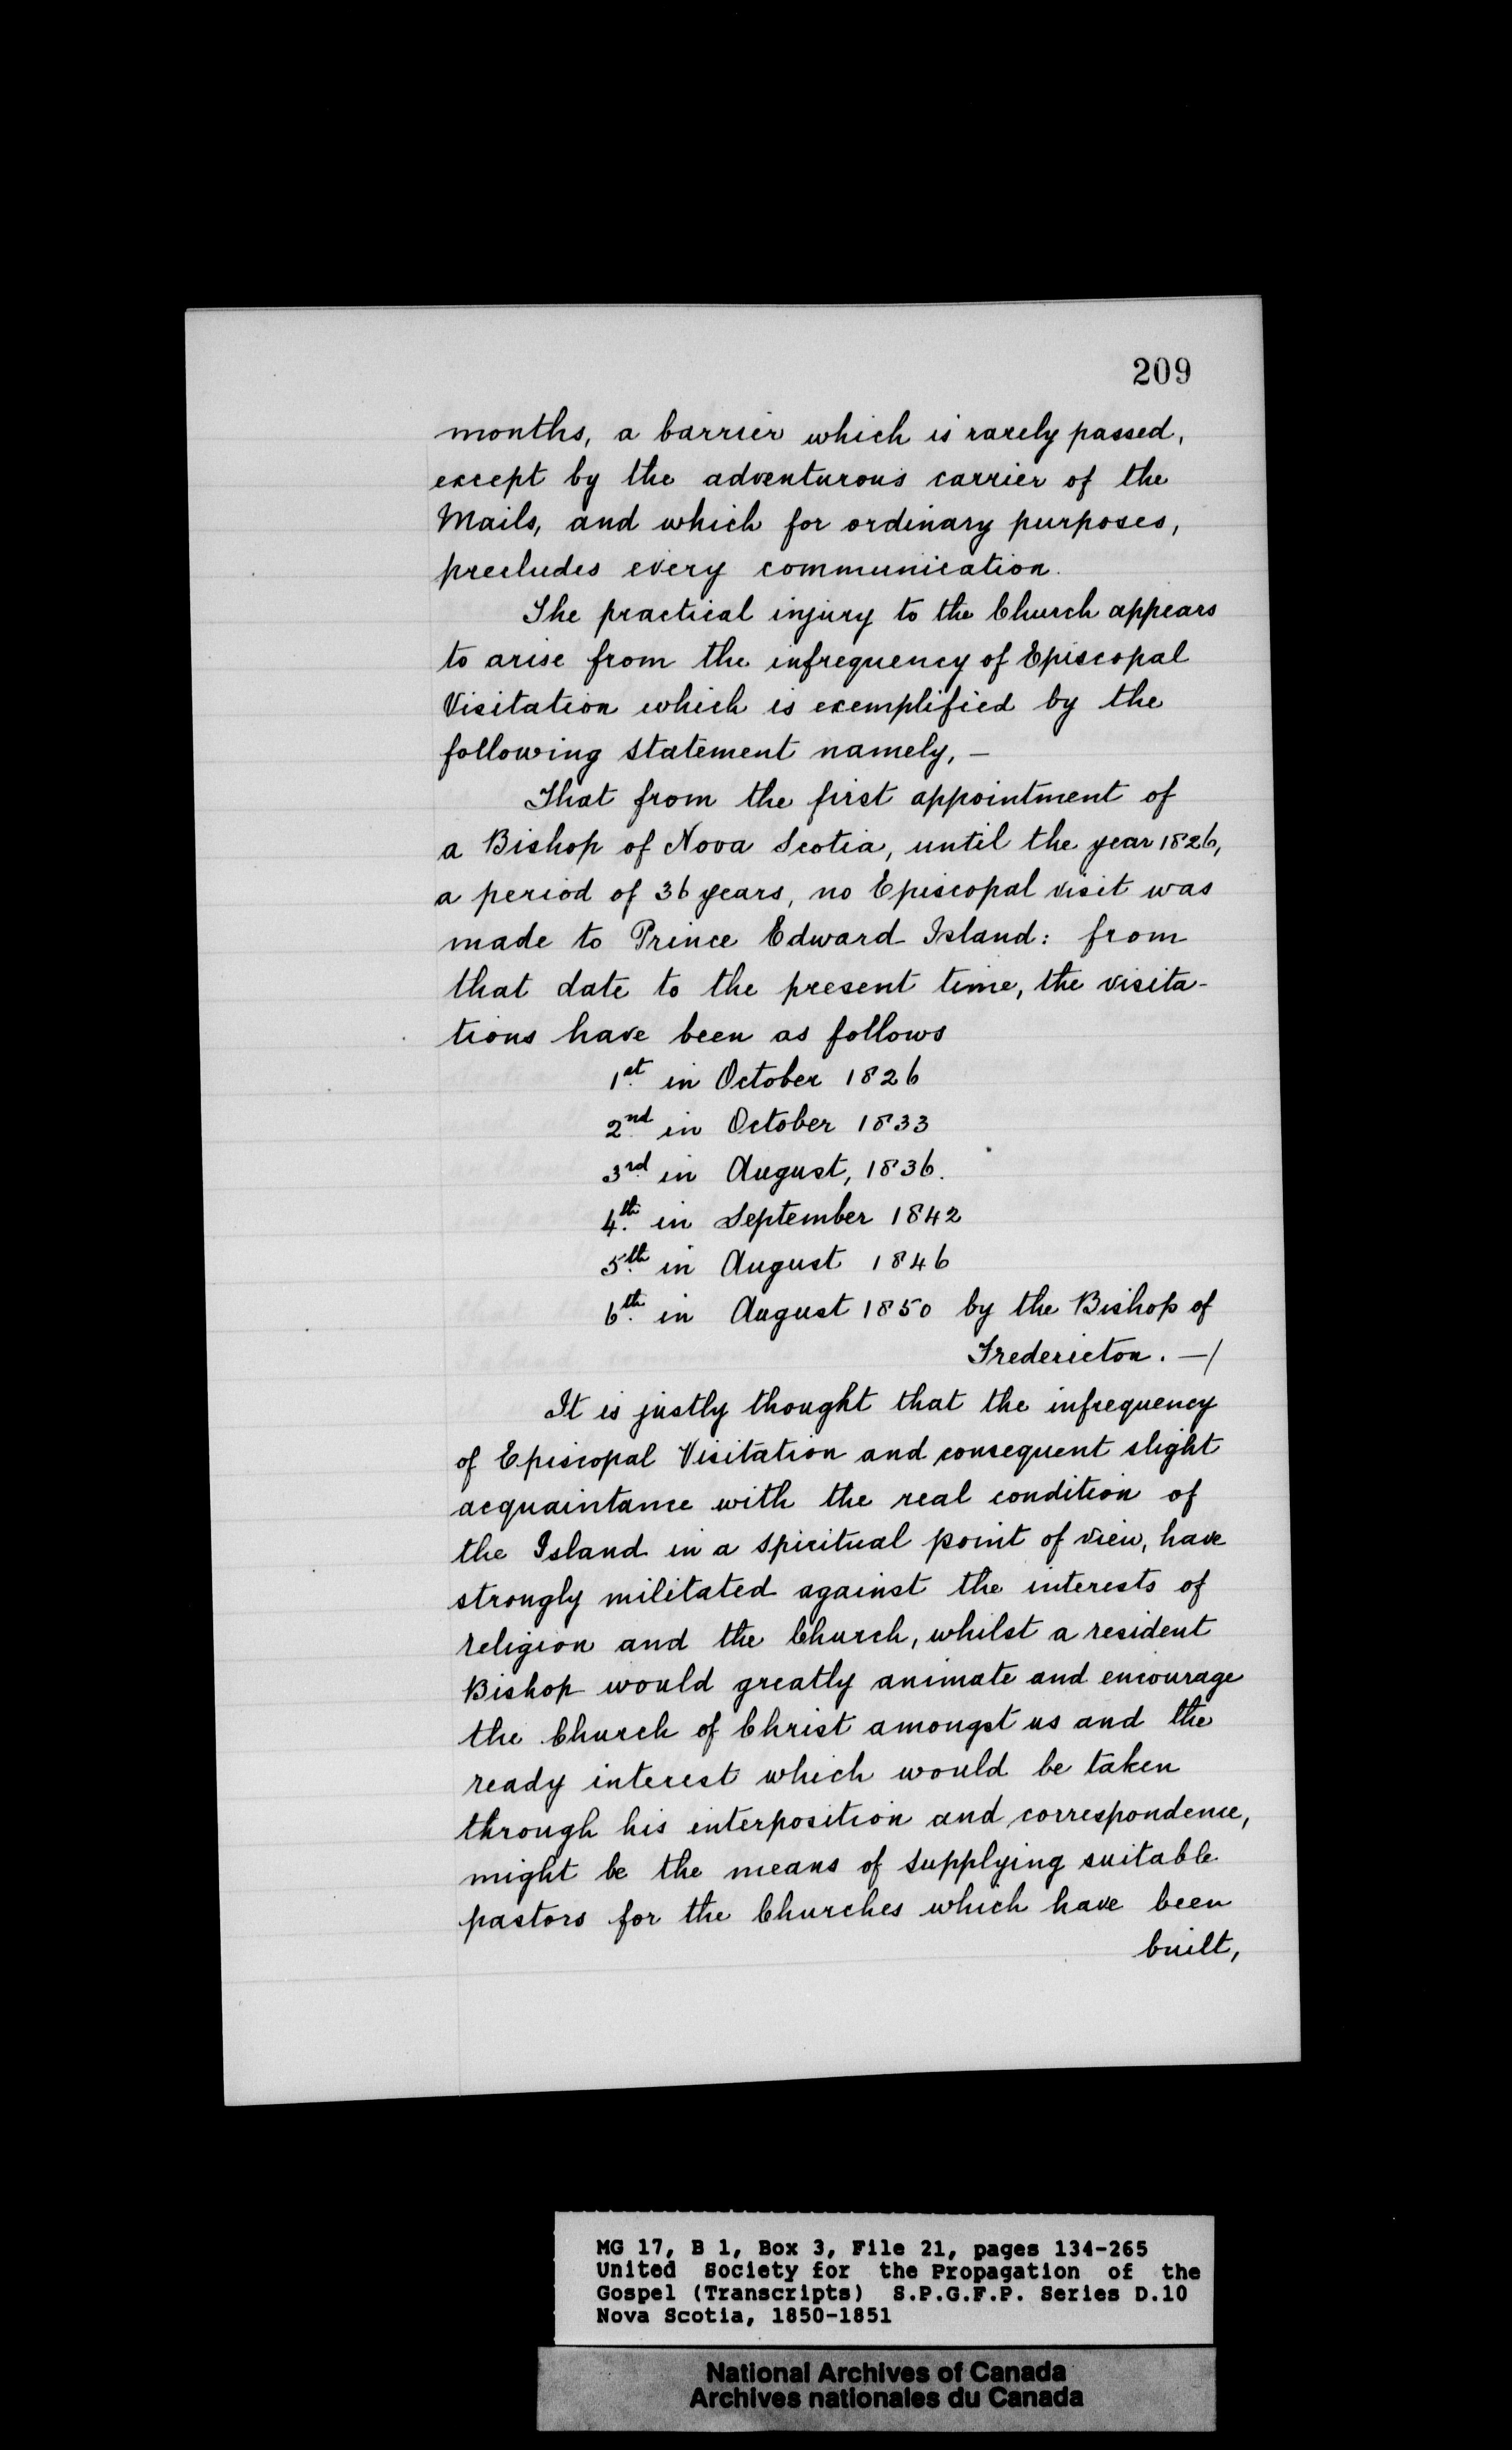 209
months, a barrier which is rarely passed,
except by the adventurous carrier of the
Mails, and which for ordinary purposes,
precludes every communication.
The practical injury to the Church appears
to arise from the infrequency of Episcopal
Visitation which is exemplified by the
following statement namely, —
That from the first appointment of
a Bishop of Nova Scotia, until the year 1826,
a period of 36 years, no Episcopal visit was
made to Prince Edward Island: from
that date to the present time, the visita-
tions have been as follows
1st. in October 1826
2nd. in October 1833
3rd. in August, 1836.
4th. in September 1842
5th. in August 1846
6th. in August 1850 by the Bishop of
Fredericton. —/
It is justly thought that the infrequency
of Episcopal Visitation and consequent slight
acquaintance with the real condition of
the Island in a spiritual point of view, have
strongly militated against the interests of
religion and the Church, whilst a resident
Bishop would greatly animate and encourage
the Church of Christ amongst us and the
ready interest which would be taken
through his interposition and correspondence,
might be the means of supplying suitable
pastors for the Churches which have been
built,
MG 17, B 1, Box 3, File 21, pages 134-265
United Society for the Propagation of the
Gospel (Transcripts) S.P.G.F.P. Series D.10
Nova Scotia, 1850-1851
National Archives of Canada
Archives nationales du Canada